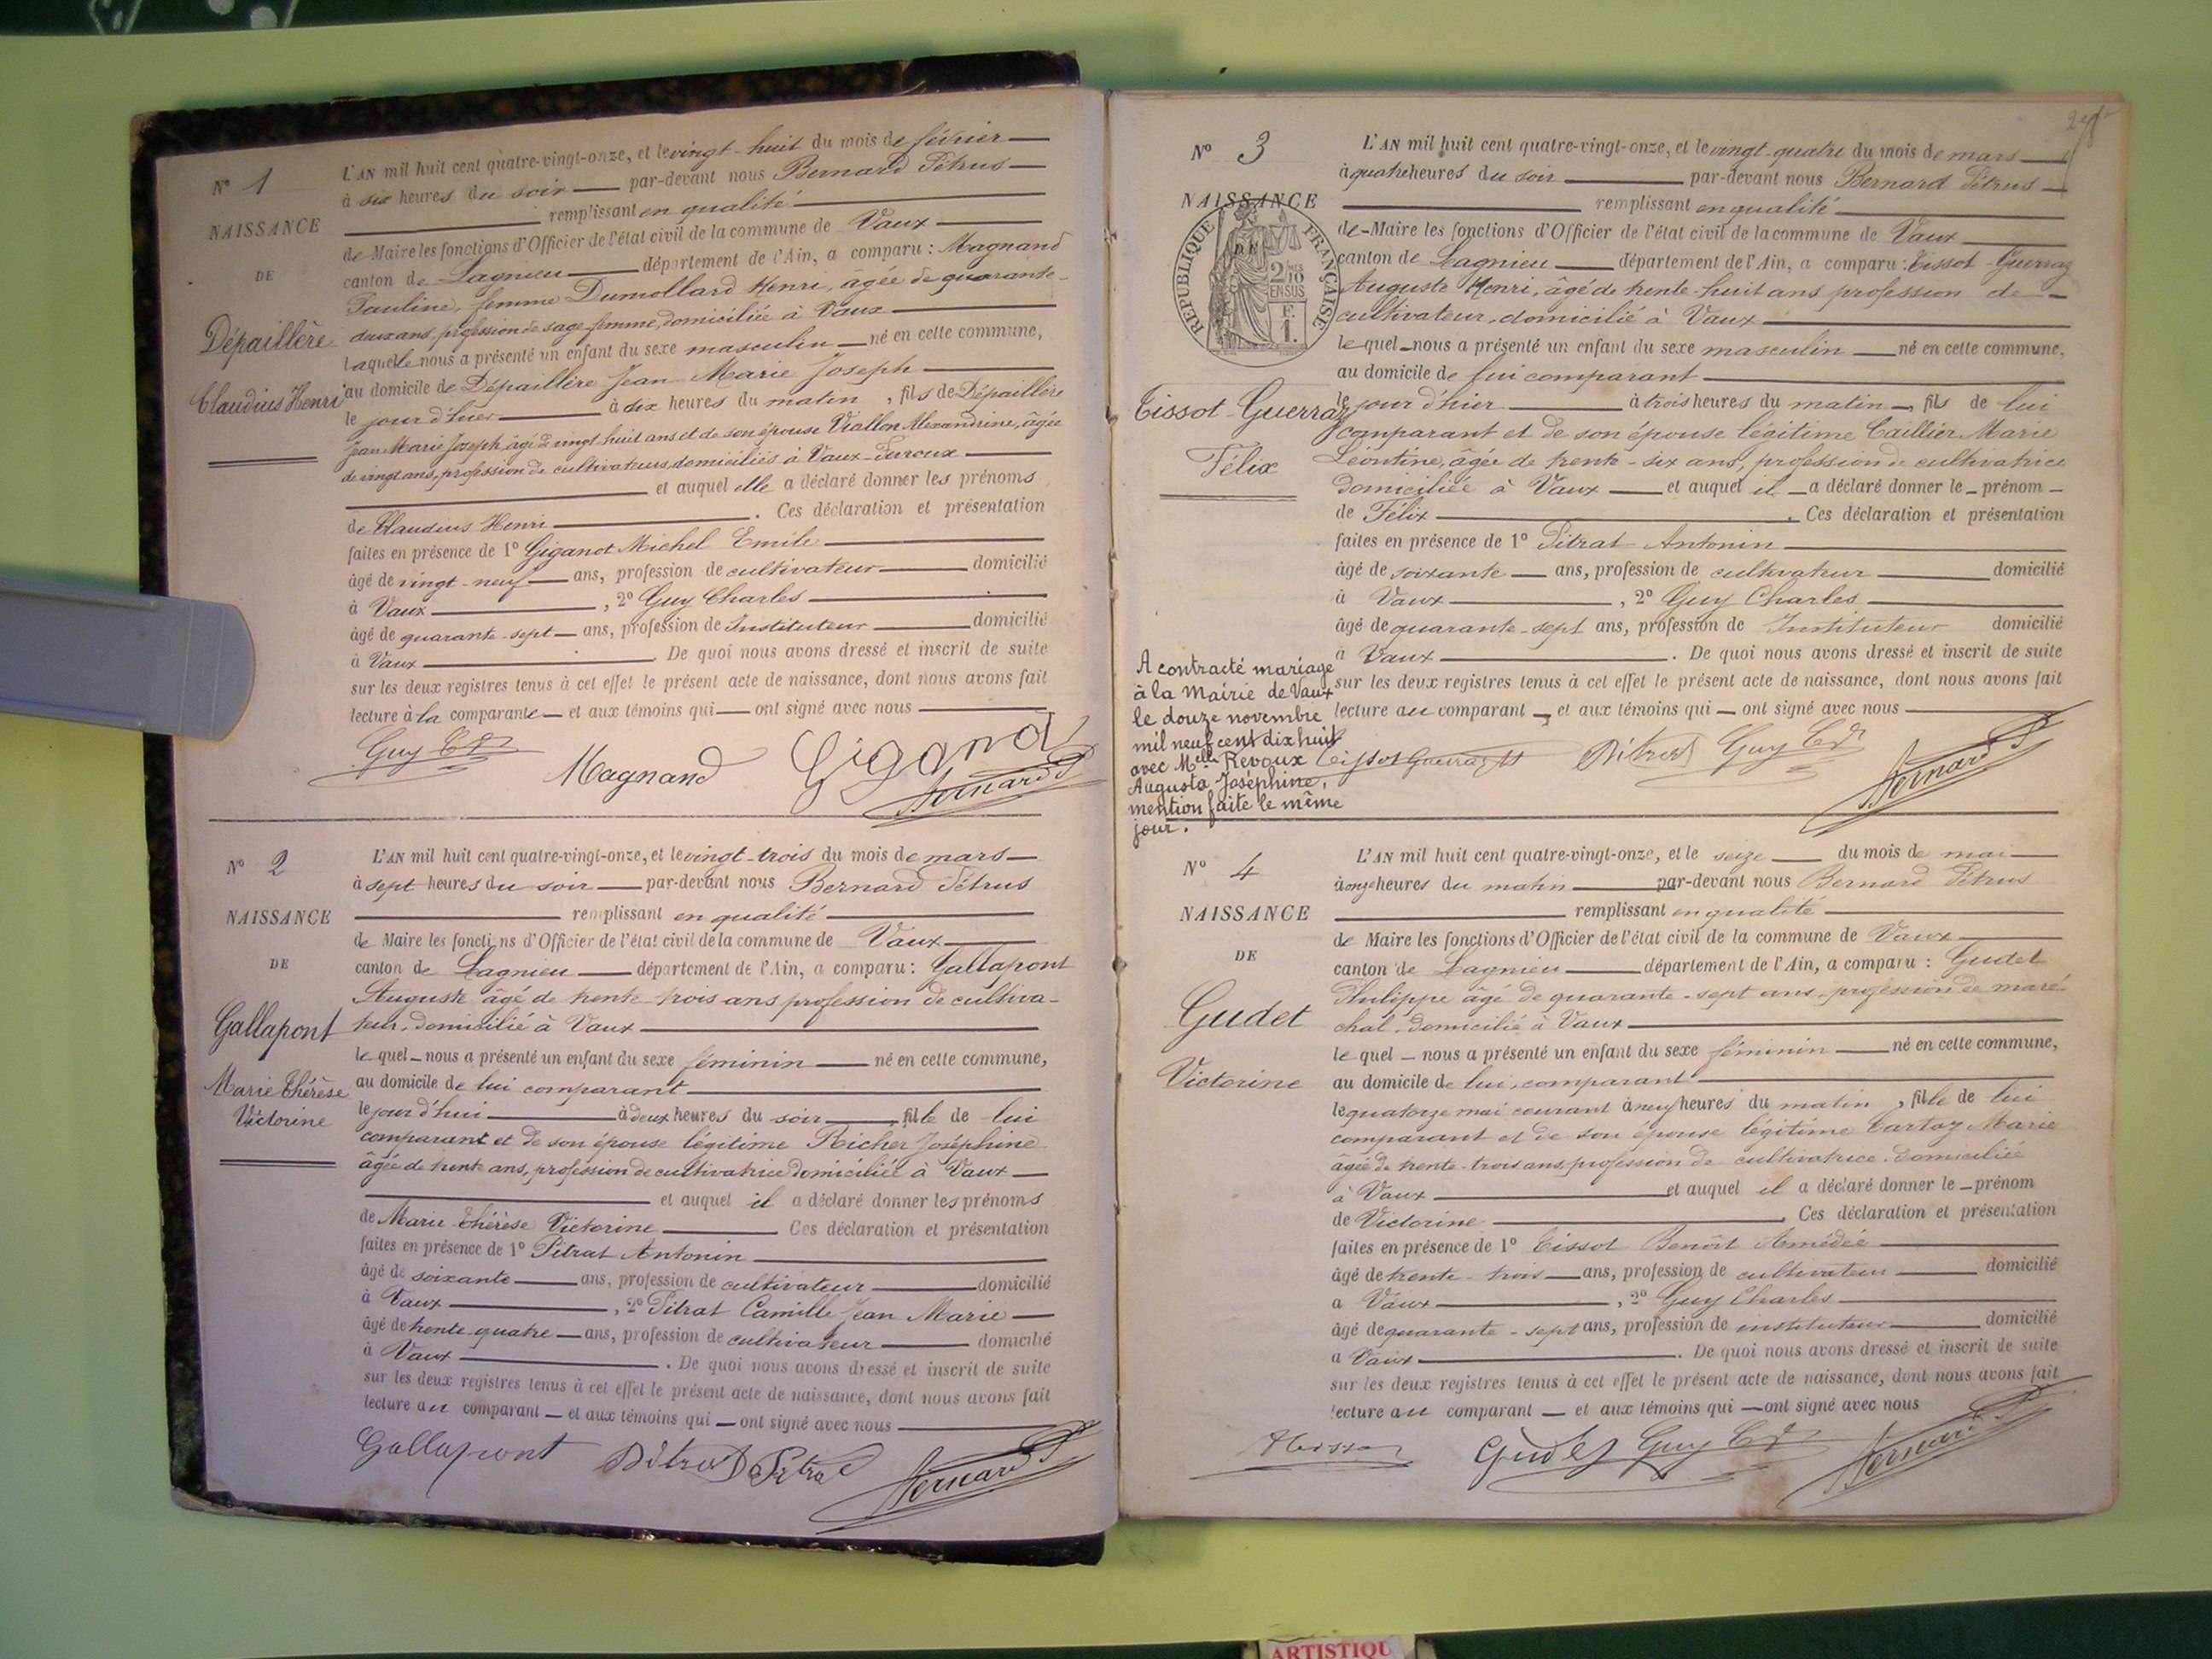 N° 1
NAISSANCE
DE
Dépaillère
Claudius Henri
L'AN mil huit cent quatre-vingt-onze, et le vingt-huit du mois de février
à six heures du soir par-devant nous Bernard Pétrus
remplissant en qualité
de Maire les fonctions d'Officier de l'état civil de la commune de Vaux
canton de Lagnieu département de l'Ain, a comparu : Magnand
Pauline, femme Dumollard Henri, âgée de quarante-
deux ans, profession de sage-femme, domiciliée à Vaux
laquelle nous a présenté un enfant du sexe masculin né en cette commune,
au domicile de Dépaillère Jean Marie Joseph
le jour d'hier à dix heures du matin, fils de Dépaillère
Jean Marie Joseph, âgé de vingt huit ans et de son épouse Viallon Alexandrine, âgée
de vingt ans, profession de cultivateurs domiciliés à Vaux-Furoux
et auquel elle a déclaré donner les prénoms
de Claudius Henri. Ces déclaration et présentation
faites en présence de 1° Giganot Michel Emile
âgé de vingt-neuf ans, profession de cultivateur domicilié
à Vaux, 2° Guy Charles
âgé de quarante-sept ans, profession de Instituteur domicilié
à Vaux. De quoi nous avons dressé et inscrit de suite
sur les deux registres tenus à cet effet le présent acte de naissance, dont nous avons fait
lecture à la comparante et aux témoins qui ont signé avec nous
Guy Magnand Bernard P
N° 2
NAISSANCE
DE
Gallapont
Marie Thérèse
Victorine
L'AN mil huit cent quatre-vingt-onze, et le vingt-trois du mois de mars
à sept heures du soir par-devant nous Bernard Pétrus
remplissant en qualité
de Maire les fonctions d'Officier de l'état civil de la commune de Vaux
canton de Lagnieu département de l'Ain, a comparu : Gallapont
Auguste âgé de trente-trois ans profession de cultiva-
teur, domicilié à Vaux
lequel nous a présenté un enfant du sexe féminin né en cette commune,
au domicile de lui comparant
le jour d'hui à deux heures du soir, fille de lui
comparant et de son épouse légitime Richer Joséphine
âgée de trente ans, profession de cultivatrice domiciliée à Vaux
et auquel il a déclaré donner les prénoms
de Marie Thérèse Victorine Ces déclaration et présentation
faites en présence de 1° Pitrat Antonin
âgé de soixante ans, profession de cultivateur domicilié
à Vaux, 2° Pitrat Camille Jean Marie
âgé de trente quatre ans, profession de cultivateur domicilié
à Vaux. De quoi nous avons dressé et inscrit de suite
sur les deux registres tenus à cet effet le présent acte de naissance, dont nous avons fait
lecture au comparant et aux témoins qui ont signé avec nous
Gallapont Pitrat Pitrat Bernard P
N° 3
NAISSANCE
DE
REPUBLIQUE FRANÇAISE
Tissot-Guerraz
Félix
L'AN mil huit cent quatre-vingt-onze, et le vingt-quatre du mois de mars
à quatre heures du soir par-devant nous Bernard Pétrus
remplissant en qualité
de Maire les fonctions d'Officier de l'état civil de la commune de Vaux
canton de Lagnieu département de l'Ain, a comparu : Tissot-Guerraz
Auguste Henri, âgé de trente-huit ans profession de
cultivateur, domicilié à Vaux
lequel nous a présenté un enfant du sexe masculin né en cette commune,
au domicile de lui comparant
le jour d'hier à trois heures du matin, fils de lui
comparant et de son épouse légitime Caillier Marie
Léontine, âgée de trente-six ans, profession de cultivatrice
domiciliée à Vaux et auquel il a déclaré donner le prénom
de Félix. Ces déclaration et présentation
faites en présence de 1° Pitrat Antonin
âgé de soixante ans, profession de cultivateur domicilié
à Vaux, 2° Guy Charles
âgé de quarante-sept ans, profession de Instituteur domicilié
à Vaux. De quoi nous avons dressé et inscrit de suite
sur les deux registres tenus à cet effet le présent acte de naissance, dont nous avons fait
lecture au comparant, et aux témoins qui ont signé avec nous
Tissot Guerraz Pitrat Guy Bernard P
A contracté mariage
à la Mairie de Vaux
le douze novembre
mil neuf cent dix huit
avec Melle Revoux
Augusta Joséphine,
mention faite le même
jour.
N° 4
NAISSANCE
DE
Gudet
Victorine
L'AN mil huit cent quatre-vingt-onze, et le seize du mois de mai
à onze heures du matin par-devant nous Bernard Pétrus
remplissant en qualité
de Maire les fonctions d'Officier de l'état civil de la commune de Vaux
canton de Lagnieu département de l'Ain, a comparu : Gudet
Philippe âgé de quarante-sept ans, profession de maré-
chal, domicilié à Vaux
lequel nous a présenté un enfant du sexe féminin né en cette commune,
au domicile de lui, comparant
le quatorze mai courant à neuf heures du matin, fille de lui
comparant et de son épouse légitime Cartaz Marie
âgée de trente-trois ans, profession de cultivatrice, domiciliée
à Vaux et auquel il a déclaré donner le prénom
de Victorine. Ces déclaration et présentation
faites en présence de 1° Tissot Benoît Amédée
âgé de trente-trois ans, profession de cultivateur domicilié
à Vaux, 2° Guy Charles
âgé de quarante-sept ans, profession de instituteur domicilié
à Vaux. De quoi nous avons dressé et inscrit de suite
sur les deux registres tenus à cet effet le présent acte de naissance, dont nous avons fait
lecture au comparant et aux témoins qui ont signé avec nous
Gudet Guy Bernard P
ARTISTIQU